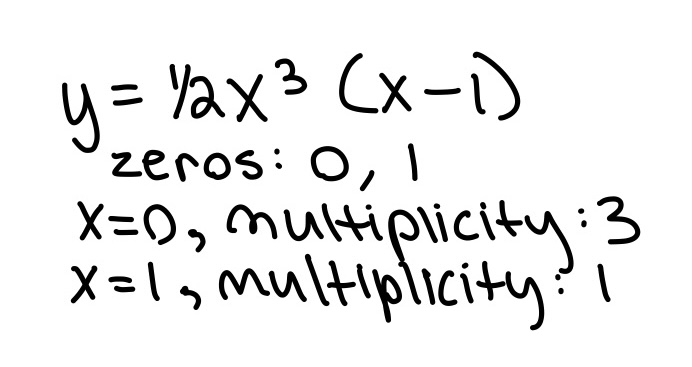 y = 1/2x³ (x-1)
zeros: 0, 1
x=0, multiplicity: 3
x=1, multiplicity: 1